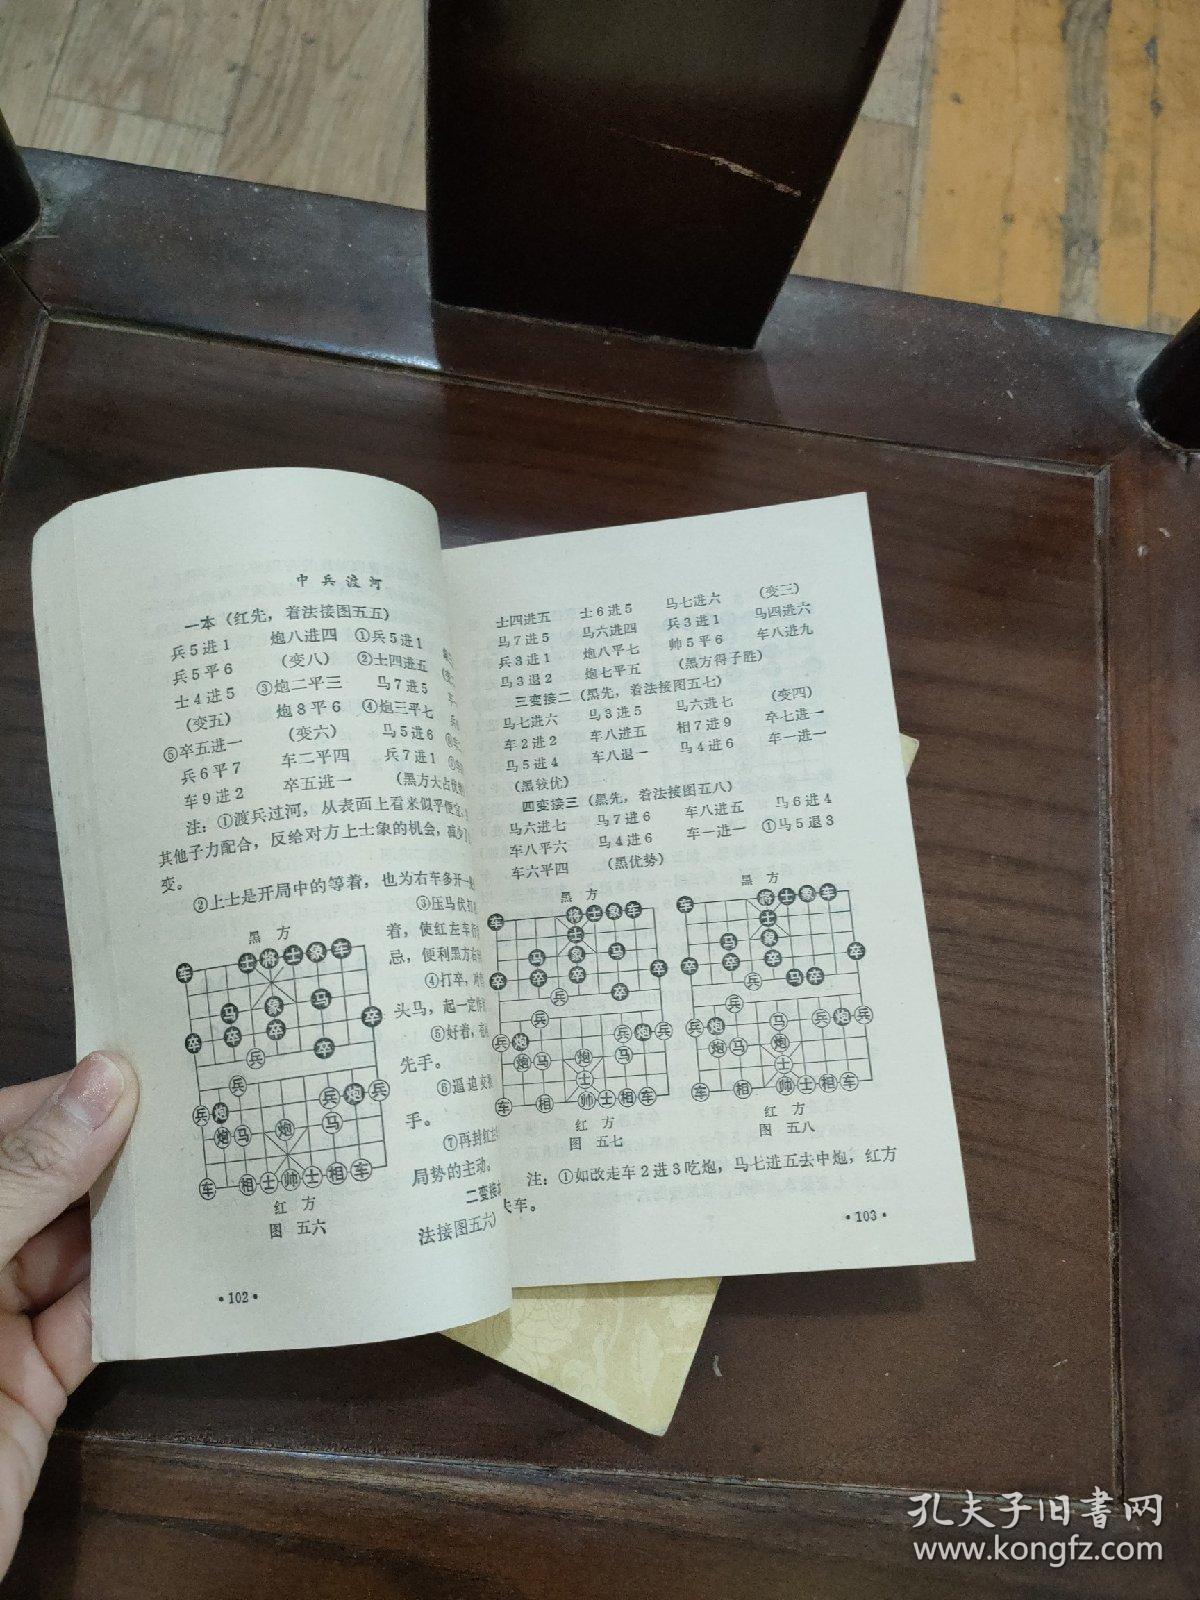 中兵渡河
一本（红先，着法接图五五）
兵5进1 炮八进四 ①兵5进1
兵5平6 （变八） ②士四进五
士4进5 ③炮二平三 马7进5
（变五） 炮8平6 ④炮三平七
⑤卒五进一 （变六） 马5进6
兵6平7 车二平四 兵7进1
车9进2 卒五进一 （黑方大占优
注：①渡兵过河，从表面上看来似乎便宜，
其他子力配合，反给对方上士象的机会，减少
变。
②上士是开局中的等着，也为右车多开一
③压马伏打
着，使红左车
忌，便利黑方
④打卒，
头马，起一定
⑤好着，
先手。
⑥逼迫
手。
⑦再封红
局势的主动。
二变接
法接图五六）
黑 方
车 士 将 士 象 车
马 象 马
卒 卒 卒 卒 卒
兵
兵
兵 炮 兵 炮 兵
炮 马 炮 马
车 相 士 帅 士 相 车
红 方
图 五六
·102·
士四进五 士6进5 马七进六 （变三）
马7进5 马六进四 兵3进1 马四进六
兵3进1 炮八平七 帅5平6 车八进九
马3退2 炮七平五 （黑方得子胜）
三变接二（黑先，着法接图五七）
马七进六 马3进5 马六进七 （变四）
车2进2 车八进五 相7进9 卒七进一
马5进4 车八退一 马4进6 车一进一
（黑较优）
四变接三（黑先，着法接图五八）
马六进七 马7进6 车八进五 马6进4
车八平六 马4进6 车一进一 ①马5退3
车六平四 （黑优势）
黑 方
车 将 士 象 车
士
马 象 马
卒 卒 卒 卒 卒
兵
兵
兵 炮 兵 炮 兵
炮 马 炮 马
士
车 相 帅 士 相 车
红 方
图 五七
黑 方
车 将 士 象 车
士
马 象
卒 卒 卒 马 卒 卒
兵
兵
兵 炮 马 兵 炮 兵
炮 马 炮
士
车 相 帅 士 相 车
红 方
图 五八
注：①如改走车2进3吃炮，马七进五去中炮，红方
失车。
·103·
孔夫子旧书网
www.kongfz.com